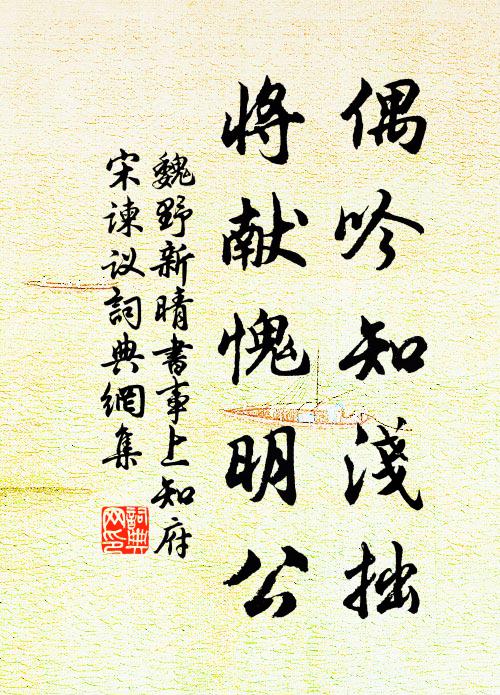 偶吟知淺拙
将献愧明公
魏野新晴書事上知府
宋谏议詞典網集
詞典
网印